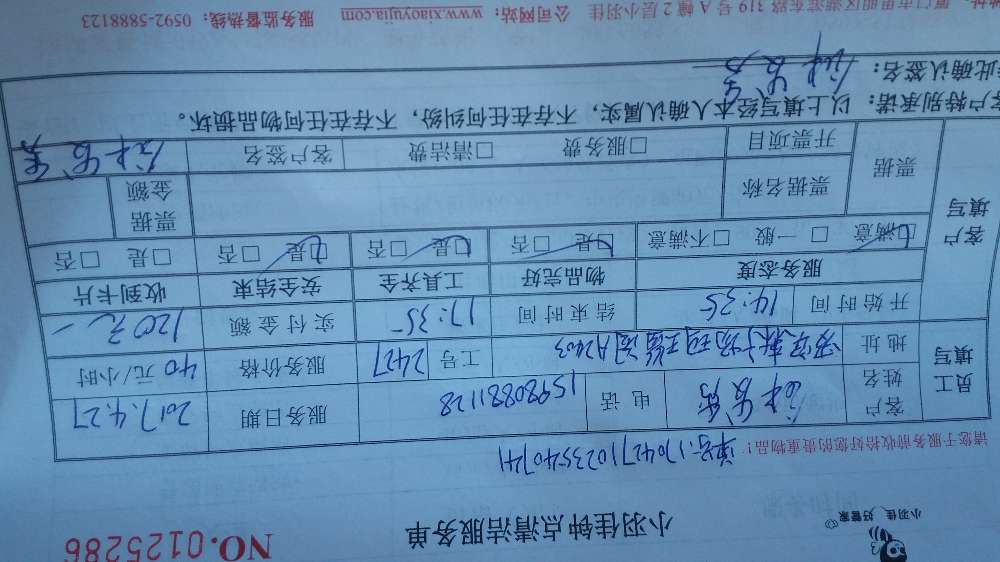 小羽佳 好管家
小羽佳钟点清洁服务单
NO.0125286
请您于服务前收拾好您的贵重物品！
单号:1704271023540741
员工填写
客户姓名
电话 15980881128
服务日期 2017.4.27
地址
A2603
工号 2427
服务价格 40 元/小时
开始时间 14:35
结束时间 17:35
实付金额 120元
客户填写
服务态度 物品完好 工具齐全 安全结束 收到卡片
□满意 □一般 □不满意 □是 □否 □是 □否 □是 □否 □是 □否
票据 票据名称 票据金额
开票项目 □服务费 □清洁费 客户签名
客户特别承诺：以上填写经本人确认属实，不存在任何纠纷，不存在任何物品损坏。
在此确认签名：
厦门市思明区湖滨东路 319 号 A 幢 2 层小羽佳 公司网站：www.xiaoyujia.com 服务监督热线：0592-5888123